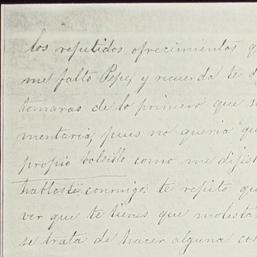 los repetidos ofrecimientos q
me falto Pepe, y recuerda te d
tomaras de lo primero que s
mentaria, pues no queria que
propio bolsillo como me dijis
hablaste conmigo: te repito qu
ver que te tienes que molesta
se trata de hacer alguna cos